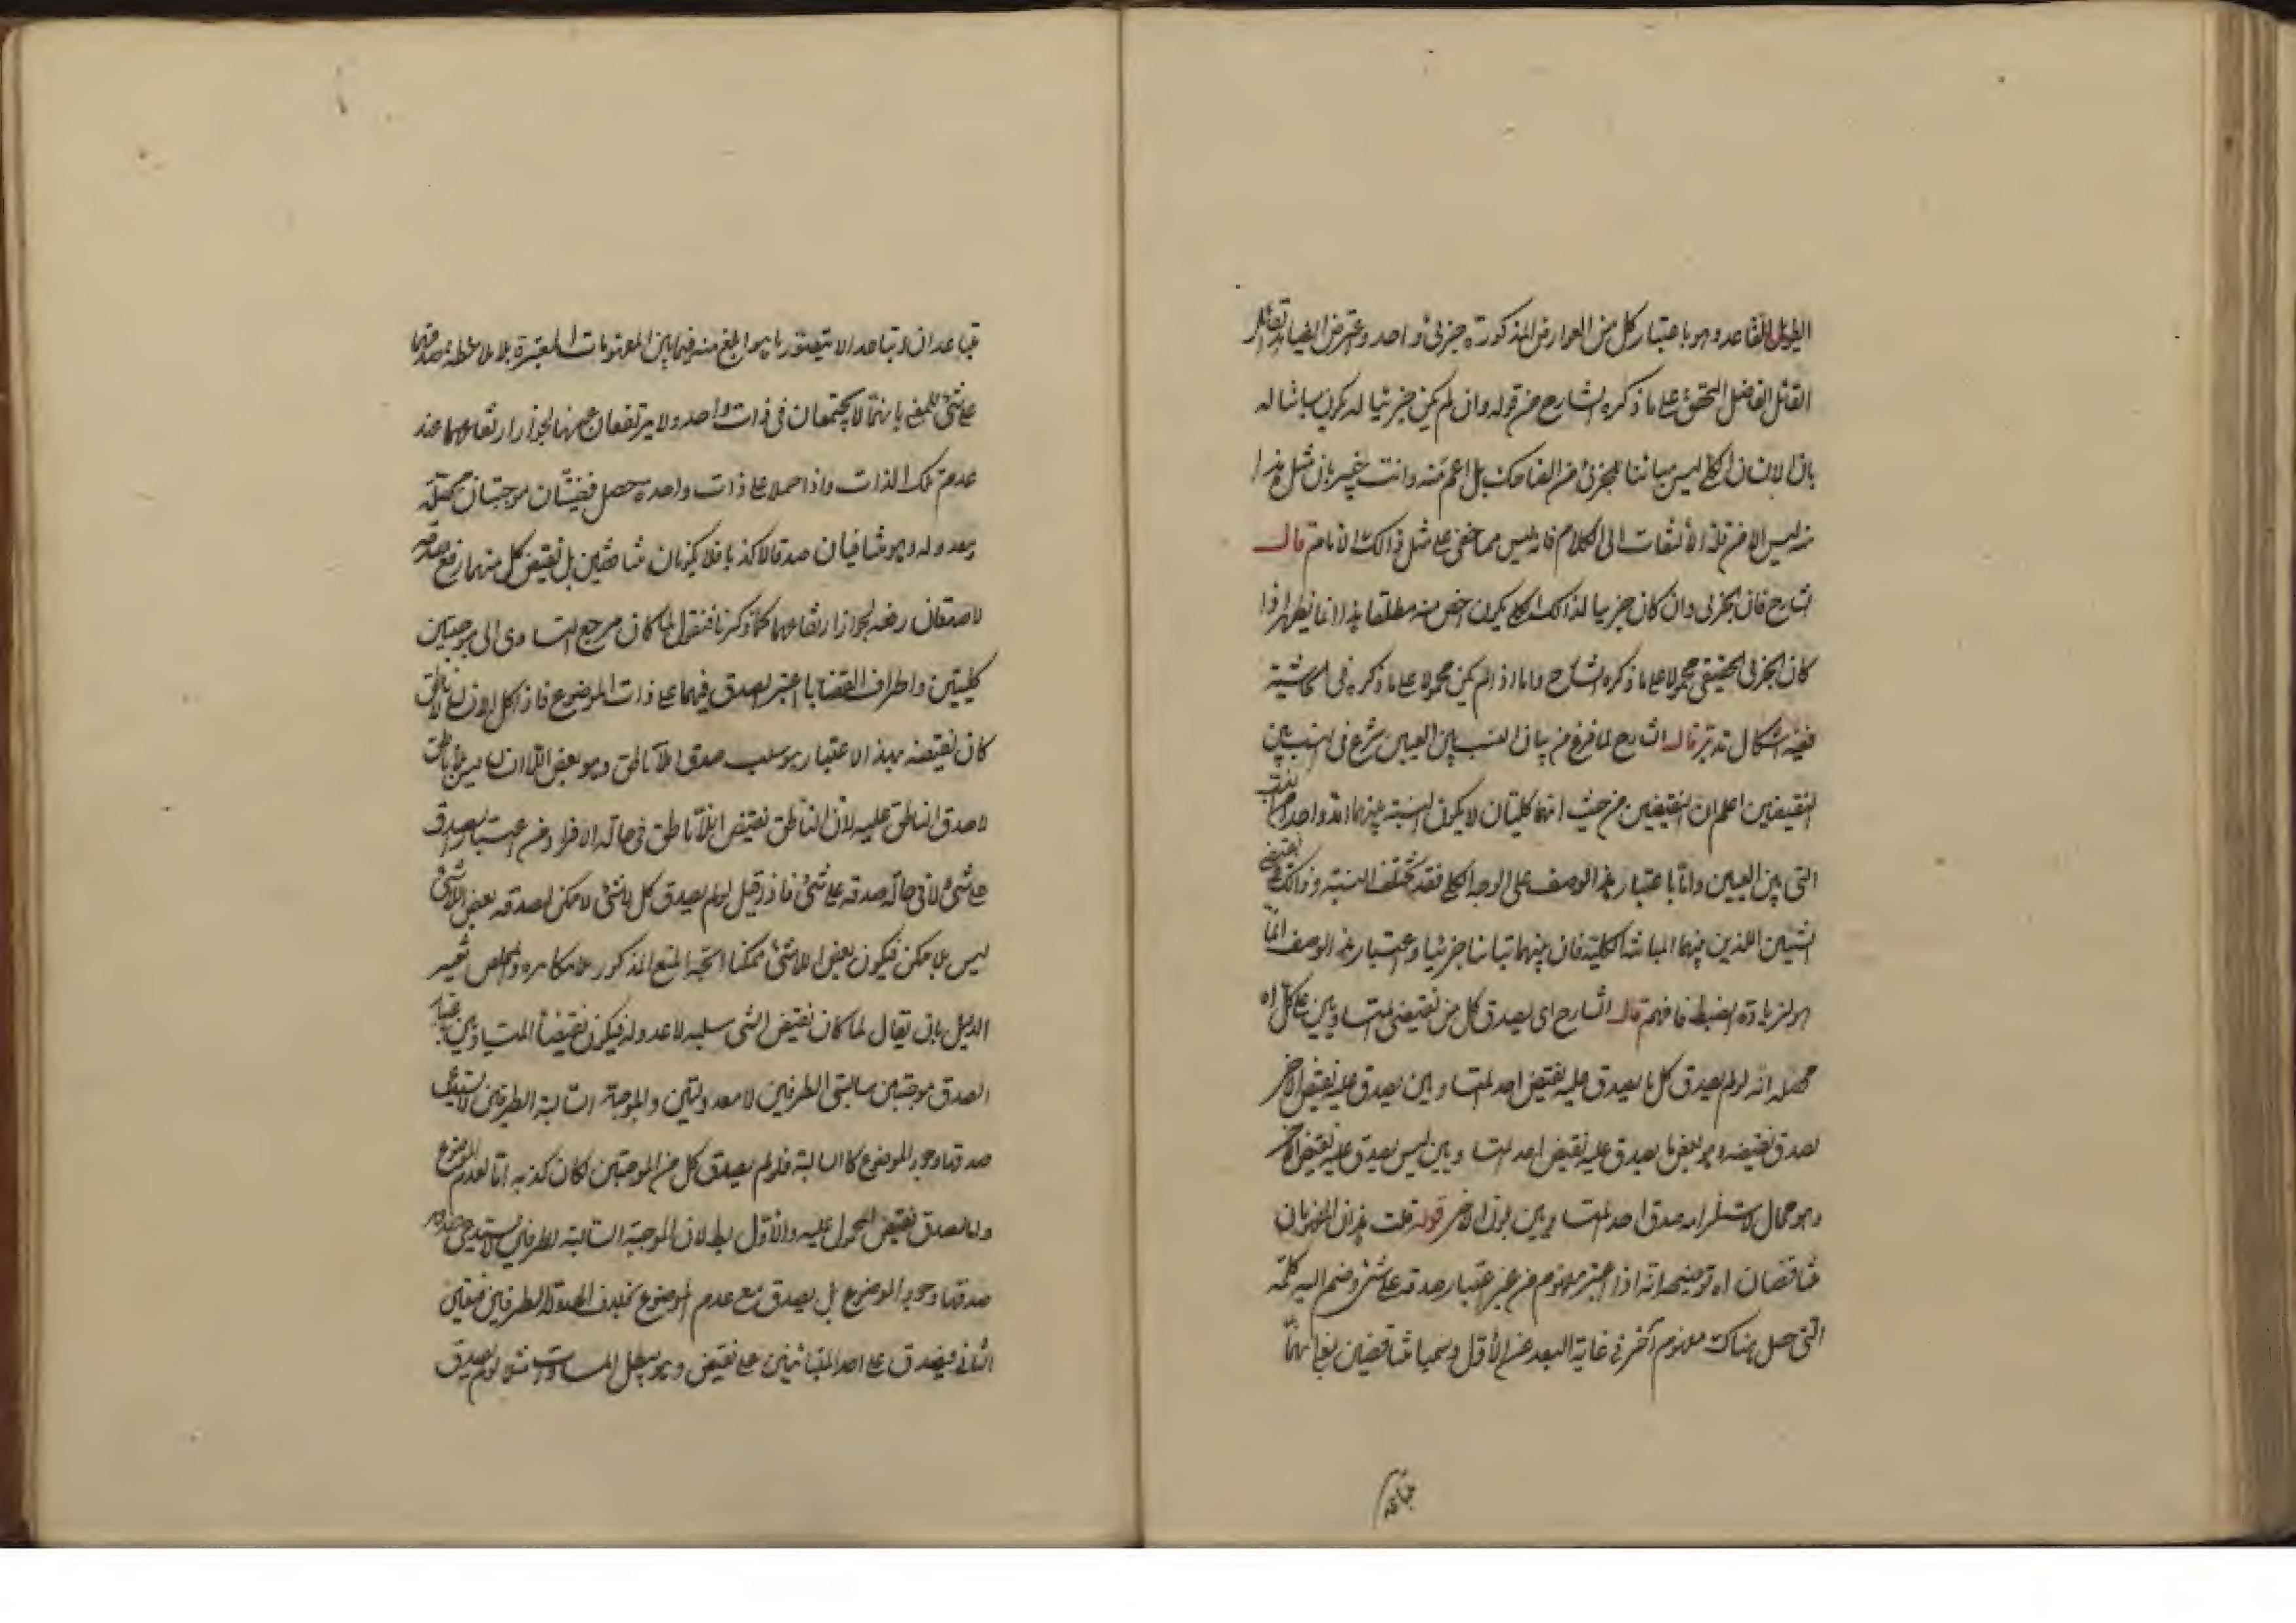 الطويل القاعد وهو باعتبار كل من العوارض المذكورة جزئى واحد وعترض ايضا
القائل الفاضل المحقق على ما ذكره الشارح من قوله وان لم يكن جزئيا له يكون مباينا له
بان الانسان الكلى ليس مباينا للجزئى من الضاحك بل اعم منه وانت خبير بان مثل هذا
ليس الا من قلة الالتفات الى الكلام فانه ليس مما خفى على مثل ذالك الامام قال
الشارح فان الجزئى وان كان جزئيا لذالك الكلى يكون اخص منه مطلقا هذا انما يظهر اذا
كان الجزئى الحقيقى محمولا على ما ذكره الشارح واما اذا لم يكن محمولا على ما ذكره فى الحاشية
ففيه اشكال تدبر قال الشارح لما فرغ من بيان النسب بين العينين شرع فى النسب بين
النقيضين اعلم ان النقيضين من حيث انهما كليتان لا يكون النسبة بينهما الا واحد من النسب
التى بين العينين واما باعتبار هذا الوصف على الوجه الكلى فقد تختلف النسبة وذالك
الشيئين اللذين بينهما المباينة الكلية فان بينهما تباينا جزئيا وعتبار هذا الوصف انما
هو لزيادة الضبط فافهم قال الشارح اى يصدق كل من نقيضى المتساويين على كل اه
محصله انه لو لم يصدق كل ما يصدق عليه نقيض احد المتساويين يصدق عليه نقيض الاخر
لصدق نقيضه وهو بعض ما يصدق عليه نقيض احد المتساويين ليس يصدق عليه نقيض الاخر
وهو محال لاستلزامه صدق احد المتساويين بدون الاخر قوله قلت هذان المفهومان
متناقضان اه توضيحه انه اذا اعتبر مفهوم من غير اعتبار صدقه على شئ وضم اليه كلمة
النفى حصل هناك مفهوم آخر فى غاية البعد عن الأول وسميا متناقضين
متباعدان
متباعدان تباعدا لا يتصور ما هو ابلغ منه فيما بين المفهومات المعتبرة بلا ملاحظة صدقها
على شئ للمعنى بانهما لا يجتمعان فى ذات واحد ولا يرتفعان عنها لجواز ارتفاعهما عند
عدم تلك الذات واذا حملا على ذات واحدة حصل قضيتان موجبتان محصلة
ومعدولة وهو متنافيان صدقا لا كذبا فلا يكونان متناقضين بل نقيض كل منهما رفع صدقه
لا صدق رفعه لجواز ارتفاعهما كما ذكرنا فنقول لما كان مرجع التساوى الى موجبتين
كليتين واطراف القضايا اعتبر الصدق فيهما على ذات الموضوع فاذا كل لا انسان لا ناطق
كان نقيضه بهذا الاعتبار هو سلب صدق اللاناطق وهو بعض اللاانسان ليس بلا ناطق
لا صدق الناطق عليه لان الناطق نقيض اللاناطق فى حالة الافراد من غير اعتبار صدق
على شئ لا فى حالة صدقه على شئ فاذا قيل لو لم يصدق كل لا شئ لا ممكن لصدقه بعض اللاشئ
ليس بلا ممكن فيكون بعض اللاشئ ممكنا اتجه المنع المذكور بلا مكابرة والمخلص تغيير
الدليل بان يقال لما كان نقيض الشئ سلبه لا عدوله فيكون نقيضا المتساويين باعتبار
الصدق موجبتين سالبتى الطرفين لا معدولتين والموجبة السالبة الطرفين لا يستدعى
صدقها وجود الموضوع كالسالبة فلو لم يصدق كل من الموجبتين لكان كذبه اما لعدم الموضوع
واما لصدق نقيض المحمول عليه والأول باطل لان الموجبة السالبة الطرفين لا يستدعى
صدقها وجود الموضوع بل يصدق مع عدم الموضوع بخلاف المعدولة الطرفين فتعين
الثانى فيصدق على احد المتباينين على نقيض وهو يبطل المساوات مثلا لو لم يصدق